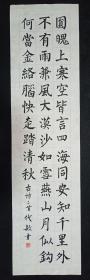 圓魄上寒空皆言四海同安知千里外
不有雨兼風大漠沙如雪燕山月似鈎
何當金絡腦快走踏清秋 古詩二首 書